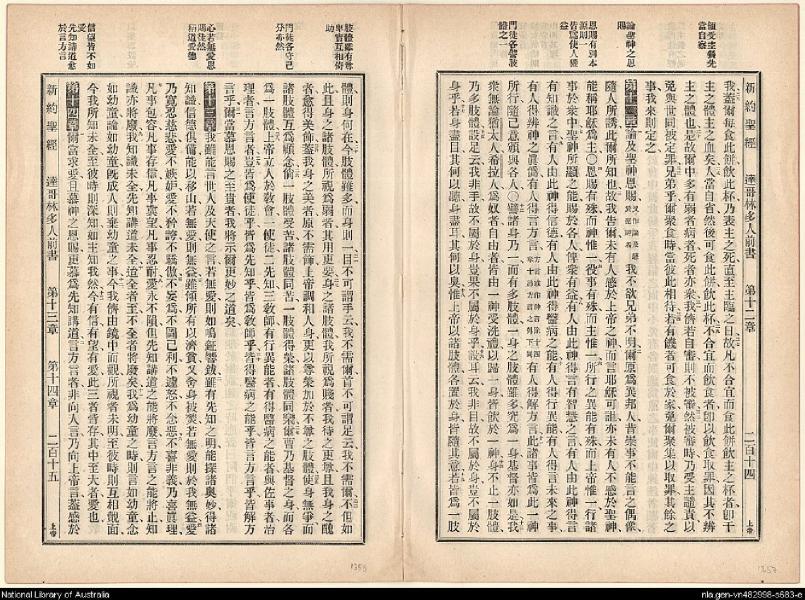 領受主餐先
當自察
論聖神之恩
賜
恩賜有別本
源則一
皆爲使人獲
益
門徒各譬肢
體之一
新約聖經 達哥林多人前書 第十二章 二百十四 上帝
我蓋爾每食此餅飲此杯乃表主之死直至主臨之日故凡不合宜而食此餅飲主之杯者即干
主之體主之血矣人當自省然後可食此餅飲此杯不合宜而飲食者即以飲食取罪因其不辨
主之體也是故爾中多有弱者病者死者亦衆我儕若自審則不被審然被審時乃受主譴責以
免與世同被定罪兄弟乎爾聚食時當彼此相待若有饑者可食於家免爾聚集以取罪其餘之
事我來則定之
第十二章論及聖神恩賜我不欲兄弟不明爾原爲異邦人昔崇事不能言之偶像
隨人所誘此爾所知也故我告爾未有人感於上帝之神而言耶穌可詛亦未有人不感於聖神
能稱耶穌爲主〇恩賜有殊而神惟一役事有殊而主惟一所行之異能有殊而上帝惟一行諸
事於衆中聖神所顯之能賜於各人俾衆有益有人由此神得言有智慧之言有人由此神得言
有知識之言有人由此神得信德有人由此神得醫病之能有人得行異能有人得言未來之事
有人得辨神之眞僞有人得言方言有人得解方言此諸事皆爲此一神
所行隨己意頒與各人〇譬諸身乃一而有多肢體一身之肢體雖多究爲一身基督亦如是我
衆無論猶太人希拉人爲奴者自由者皆由一神受洗禮以歸一身皆飲於一神身不止一肢體
乃多肢體設足云我非手故不屬於身豈果不屬於身乎設耳云我非目故不屬於身豈不屬於
身乎若身盡目其何以聽身盡耳其何以臭惟上帝以諸肢體各置於身皆隨其意若皆爲一肢
肢體雖有尊
卑實互相倚
助
門徒各守己
分亦然
心若無愛恩
賜徒然
稱道愛德
信望皆不如
愛
先知講道愈
於言方言
體則身何在今肢體雖多而身則一目不可謂手云我不需爾首不可謂足云我不需爾不但如
此且身之諸肢體所視爲弱者其用更要身之諸肢體我所視爲賤者我待之更尊且我身之醜
者愈得美飾蓋我身之美者原不需飾上帝調和人身更以尊榮加於不尊之肢體使身無爭而
諸肢體互爲顧念倘一肢體受苦諸肢體同苦一肢體得榮諸肢體同樂爾曹乃基督之身而各
爲一肢體上帝立人於敎會一使徒二先知三敎師有行異能者有得醫病之能者與佐事者治
理者言方言者豈皆爲使徒乎皆爲先知乎皆爲敎師乎皆得醫病之能乎皆言方言乎皆解方
言乎爾當慕恩賜之至貴者我將示爾更妙之道矣
第十三章我雖能言世人及天使之言若無愛則如鳴鉦響鈸雖有先知之明能探諸奧妙得諸
知識信德俱備能以移山若無愛則無益雖傾所有以濟貧又舍身被焚若無愛則於我無益愛
乃寬忍慈悲愛不嫉妒愛不矜誇不驕傲不妄爲不圖己利不遽怒不念惡不喜非義乃喜眞理
凡事包容凡事信凡事冀望凡事忍耐愛永不隕但先知講道之能將廢言方言之能將止知
識亦將廢我知識未全先知講道未全迨全者至不全者將廢矣我爲幼童之時則言如幼童念
如幼童論如幼童旣成人則棄幼童之事今我儕由鏡中而觀所視者未明至彼時則互相覿面
今我所知未全至彼時則深知如主知我然今有信有望有愛此三者皆存其中至大者愛也
第十四章爾當求愛且慕神之恩賜更慕爲先知講道言方言者非向人言乃向上帝言蓋感於
新約聖經 達哥林多人前書 第十三章 第十四章 二百十五 上帝
National Library of Australia
nla.gen-vn482998-s683-e